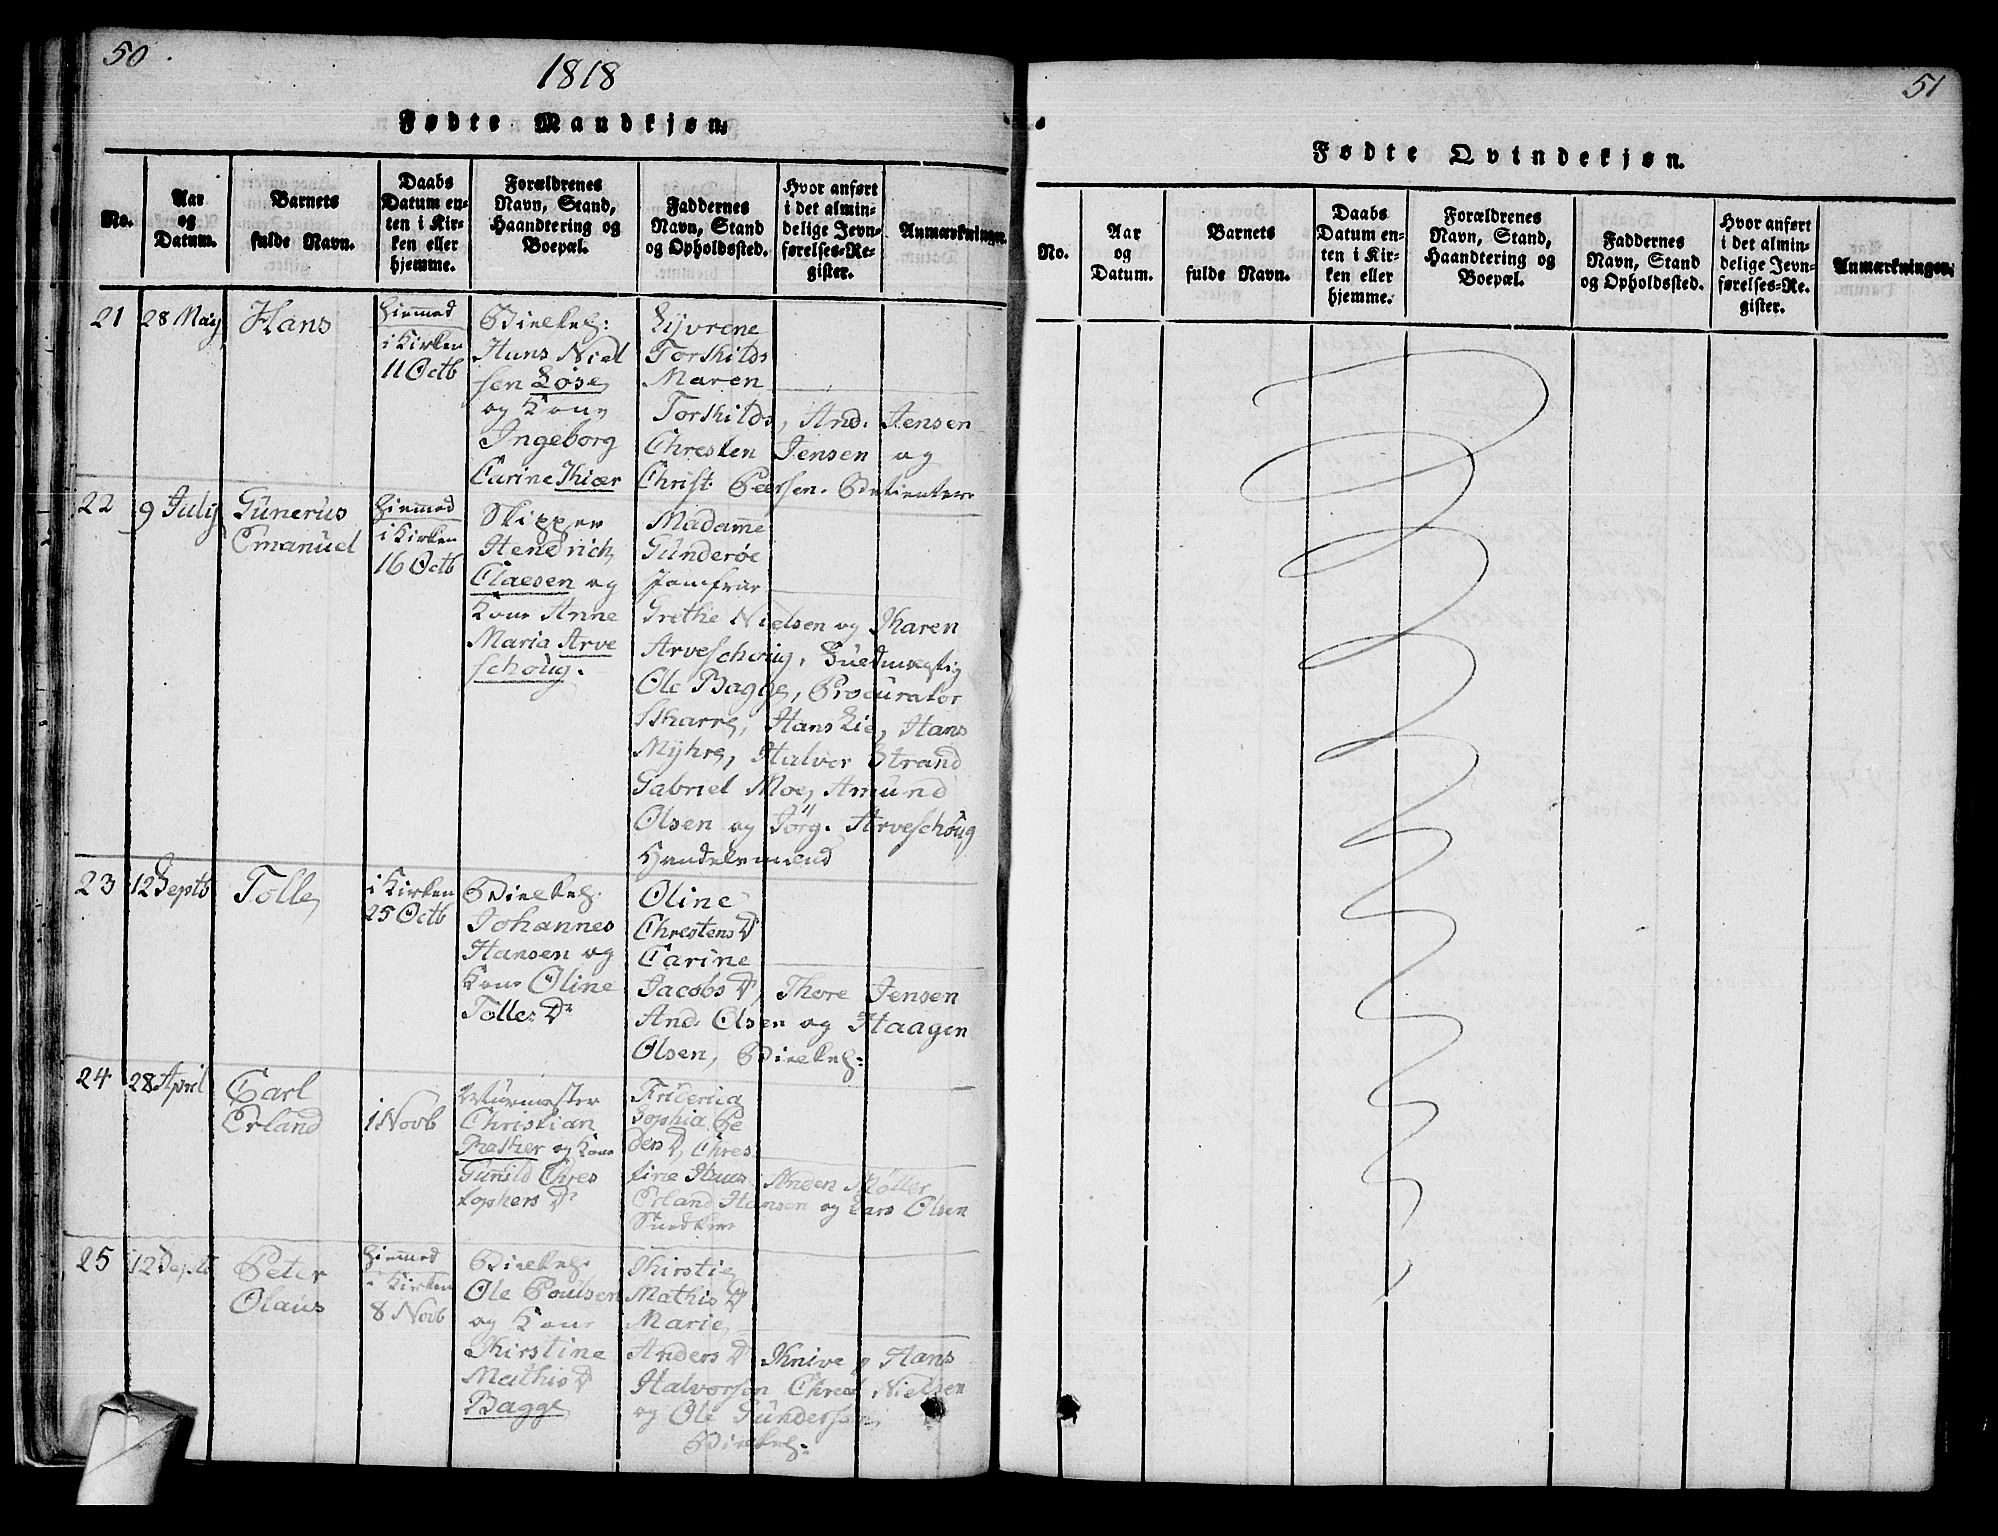 50.
1818
Fødte Mandkjøn.
No.
Aar
og
Datum.
Barnets
fulde Navn.
Daabs
Datum en-
ten i Kir-
ken eller
hjemme.
Forældrenes
Navn, Stand,
Haandtering og
Boepæl.
Faddernes
Navn, Stand
og Opholdssted.
Hvor anført
i det almin-
delige Jevn-
førelses-Re-
gister.
Anmærkninger.
21
28 May
Hans
Hiemmed
i Kirken
11 Octb
Hans Niel
sen Løse
og Kone
Ingeborg
Carine Thiær
Torskilds
Maren
Torskilds, And. Jensen
Chresten Jensen og
Christ. Peersen.
22
9 July
Gunerus
Emanuel
Hiemmed
i Kirken
16 Octb
Skipper
Hendrich
Claesen og
Kone Anne
Maria Arve
schoug.
Madamme
Gunderøe
Jomfrue
Grethe Nielsen og Karen
Arveschoug,
Ole Bagge, Procurator
Skarre, Hans Lie, Hans
Myhre, Halvor Strand
Gabriel Moe, Amund
Olsen og Jörg. Arveschoug
23
12 Septb
Tolle
i Kirken
25 Octb
Johannes
Hansen og
Kone Oline
Tolles Dr
Oline
Chrestens Dr
Carine
Jacobs Dr, Thore Jensen
And. Olsen og Haagen
Olsen,
24
28 April
Carl
Erland
1 Novb
Christian
og Kone
Gunild Chres
tophers Dr
Friderica
Sophia Pe
ders Dr, Chres
tine
Anden Møller
Erland Hansen og Lars Olsen
25
12 Sept
Peter
Olaus
Hiemmed
i Kirken
8 Novb
Ole Poulsen
og Kone
Kirstine
Mathis Dr
Bagge
Kirstie
Mathis Dr
Marie
Anders Dr Knive, Hans
Halvorsen Chrest. Nielsen
og Ole Gundersen
51
Fødte Qvindekjøn.
No.
Aar
og
Datum.
Barnets
fulde Navn.
Daabs
Datum en-
ten i Kir-
ken eller
hjemme.
Forældrenes
Navn, Stand,
Haandtering og
Boepæl.
Faddernes
Navn, Stand
og Opholdssted.
Hvor anført
i det almin-
delige Jevn-
førelses-Re-
gister.
Anmærkninger.